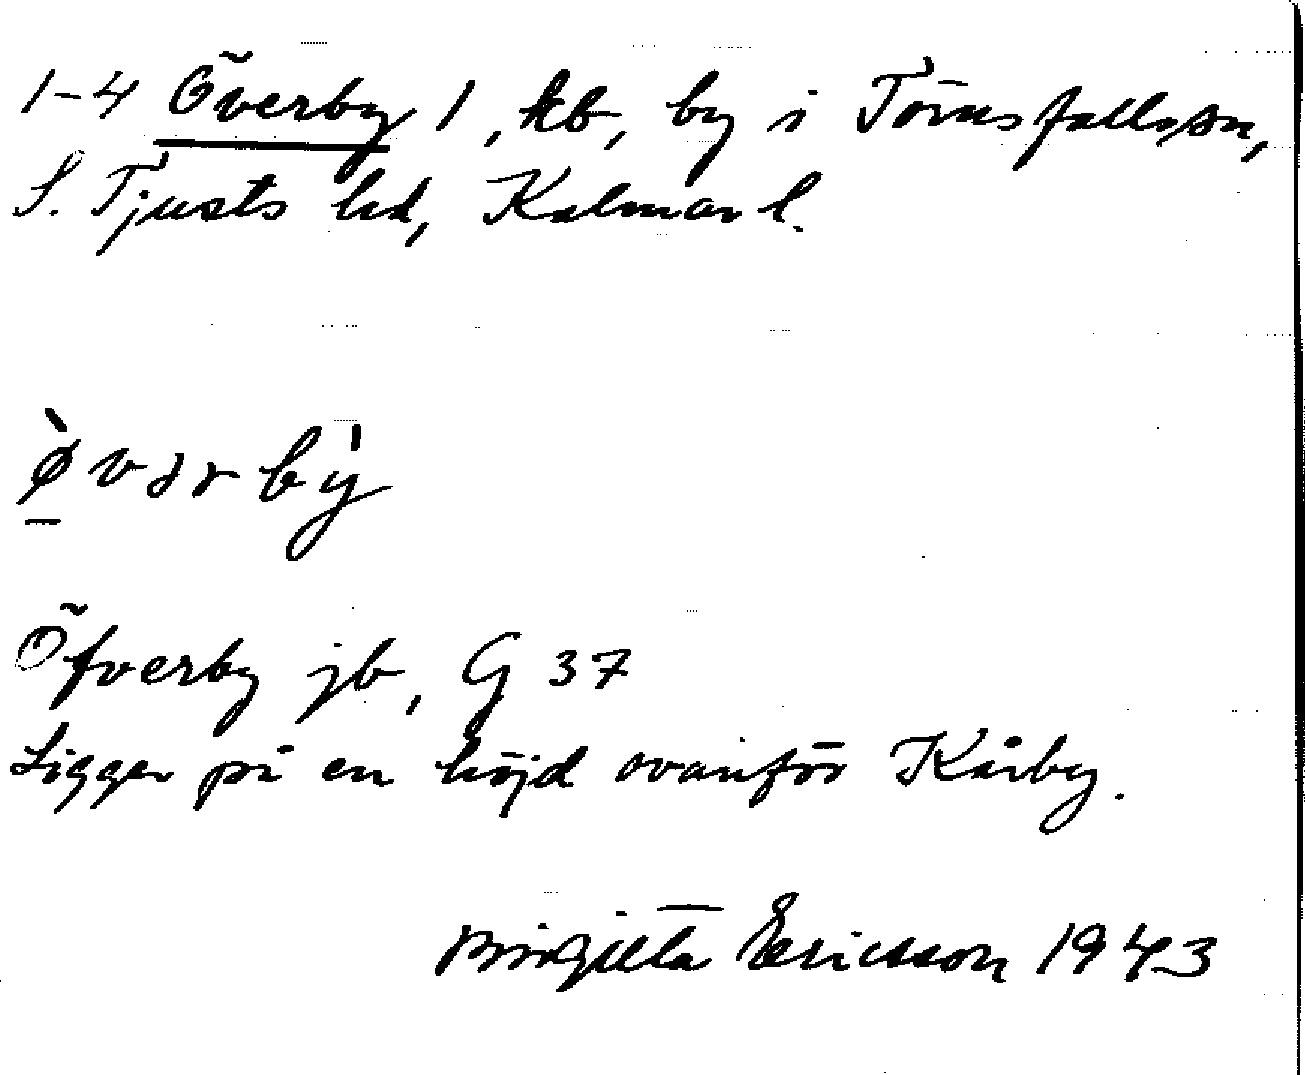 1-4 Överby 1, kb, by i Törnsfallssn,
S. Tjusts hd, Kalmar l.
ø̀vərbý
Öfverby jb, G 37
Ligger på en höjd ovanför Kårby.
Birgitta Ericsson 1943